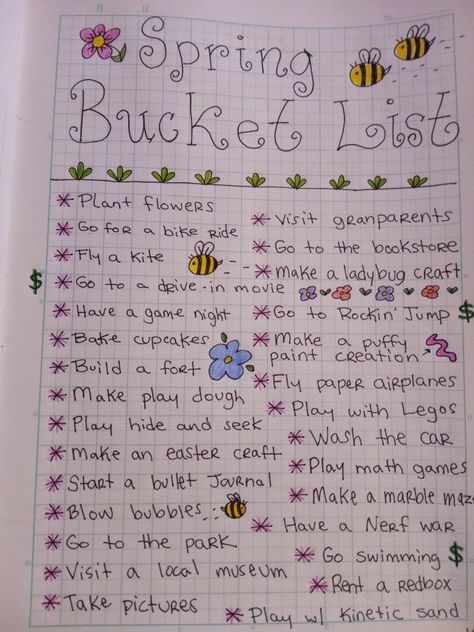 Spring
Bucket List
* Plant flowers
* Go for a bike ride
* Fly a kite
$ * Go to a drive-in movie
* Have a game night
* Bake cupcakes
* Build a fort
* Make play dough
* Play hide and seek
* Make an easter craft
* Start a bullet Journal
* Blow bubbles
* Go to the park
* Visit a local museum
* Take pictures
* Visit granparents
* Go to the bookstore
* Make a ladybug craft
* Go to Rockin' Jump $
* Make a puffy
paint creation
* Fly paper airplanes
* Play with Legos
* Wash the car
* Play math games
* Make a marble maz
* Have a Nerf war
* Go swimming $
* Rent a redbox
* Play w/ kinetic sand